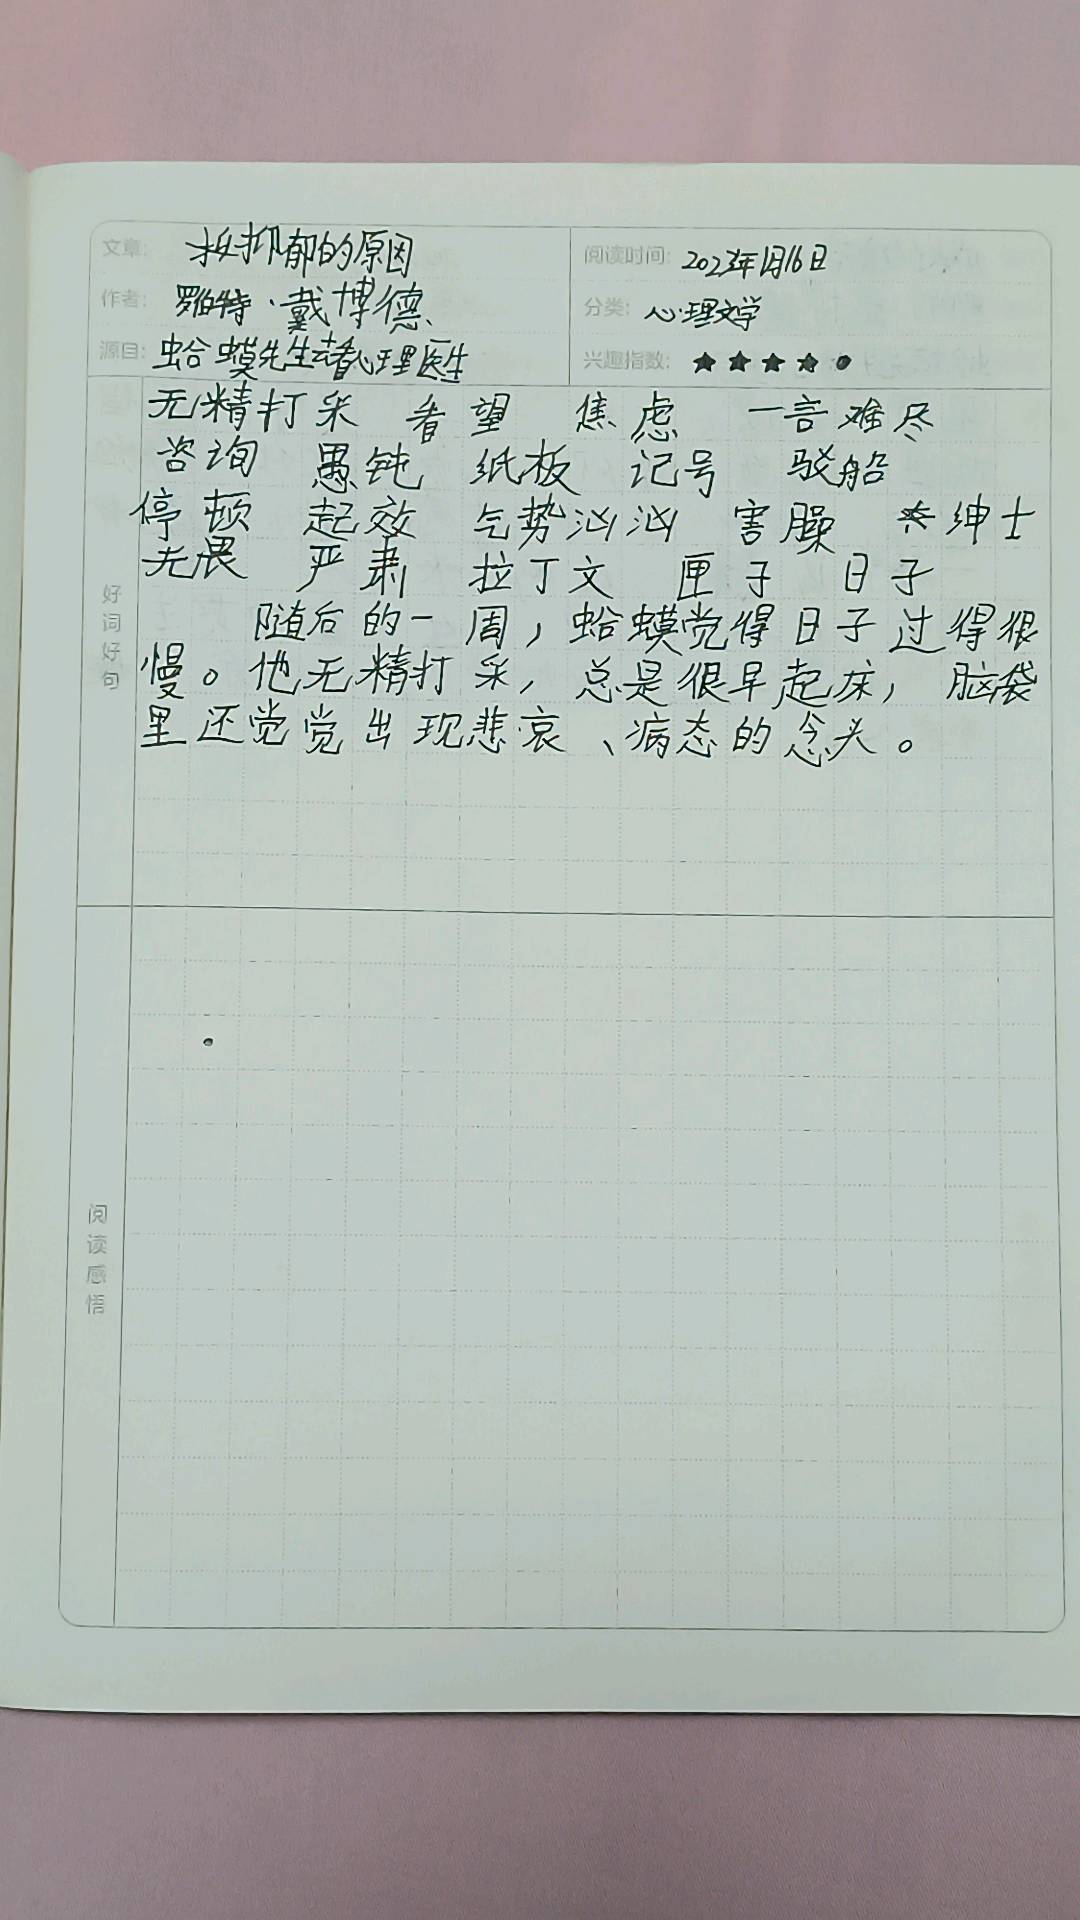 文章: 找抑郁的原因
阅读时间: 2023年1月16日
作者: 罗伯特·戴博德
分类: 心理文学
源目: 蛤蟆先生去看心理医生
兴趣指数: ★★★★●
无精打采 看望 焦虑 一言难尽
咨询 愚钝 纸板 记号 驳船
停顿 起效 气势汹汹 害臊 绅士
无畏 严肃 拉丁文 匣子 日子
随后的一周，蛤蟆觉得日子过得很
慢。他无精打采，总是很早起床，脑袋
里还觉觉出现悲哀、病态的念头。
好词好句
阅读感悟